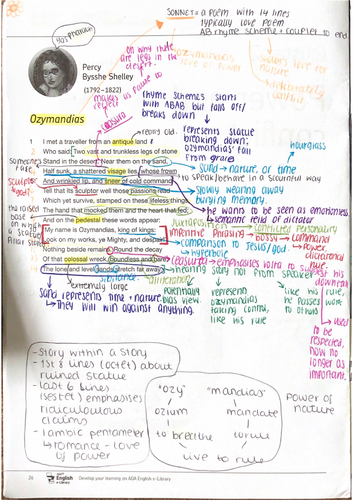 SONNET = a poem with 14 lines
typically love poem
AB rhyme scheme + couplet to end
was pharaoh
on why there
are legs in the
desert.
ozymandias
love of power
Shelley's love for
nature
Percy
Bysshe Shelley
(1792–1822)
makes us
caesura
rhyme schemes starts
with ABAB but falls off/
breaks down
Ozymandias
really old.
represents statue
breaking down;
ozymandias fall
from grace
hourglass
I met a traveller from an antique land
Who said: Two vast and trunkless legs of stone
Stand in the desert. Near them on the sand,
Half sunk, a shattered visage lies, whose frown
And wrinkled lip, and sneer of cold command
Tell that its sculptor well those passions read
Which yet survive, stamped on these lifeless things,
The hand that mocked them and the heart that fed;
And on the pedestal these words appear:
'My name is Ozymandias, king of kings:
Look on my works, ye Mighty, and despair!'
Nothing beside remain. Round the decay
Of that colossal wreck, boundless and bare
The lone and level sands stretch far away.
Someones
face
sculptor
is good!
the raised
base on
which a
statue/
pillar stands
sand = nature, or time
to speak/behave in a scornful way
slowly wearing away
burying memory.
he wants to be seen as emotionless
semantic field of dictator
juxtaposition
conflicted personality
imperative phrasing → bossy → command
comparison to Jesus/god
power
dictatorial
rule.
hyperbole
caesura
emphasises
his
downfall
sibilance
alliteration
hearing story not from speaker
extremely large
potentially
bias view.
represents
ozymandias
taking control,
like his rule
like his
rule,
he passes
to others
work
used
to be
respected,
now no
longer as
important.
sand represents time + nature.
→ They will win against anything.
- Story within a story
- 1st 8 lines (octet) about
ruined statue
- last 6 lines
(sestet) emphasises
ridiculous
claims
- Iambic pentameter
→ romance - love
of power
"ozy"
ozium
to breathe
"mandias"
mandate
to rule
live to rule
Power of
nature
26
Develop your learning on AQA English e-Library